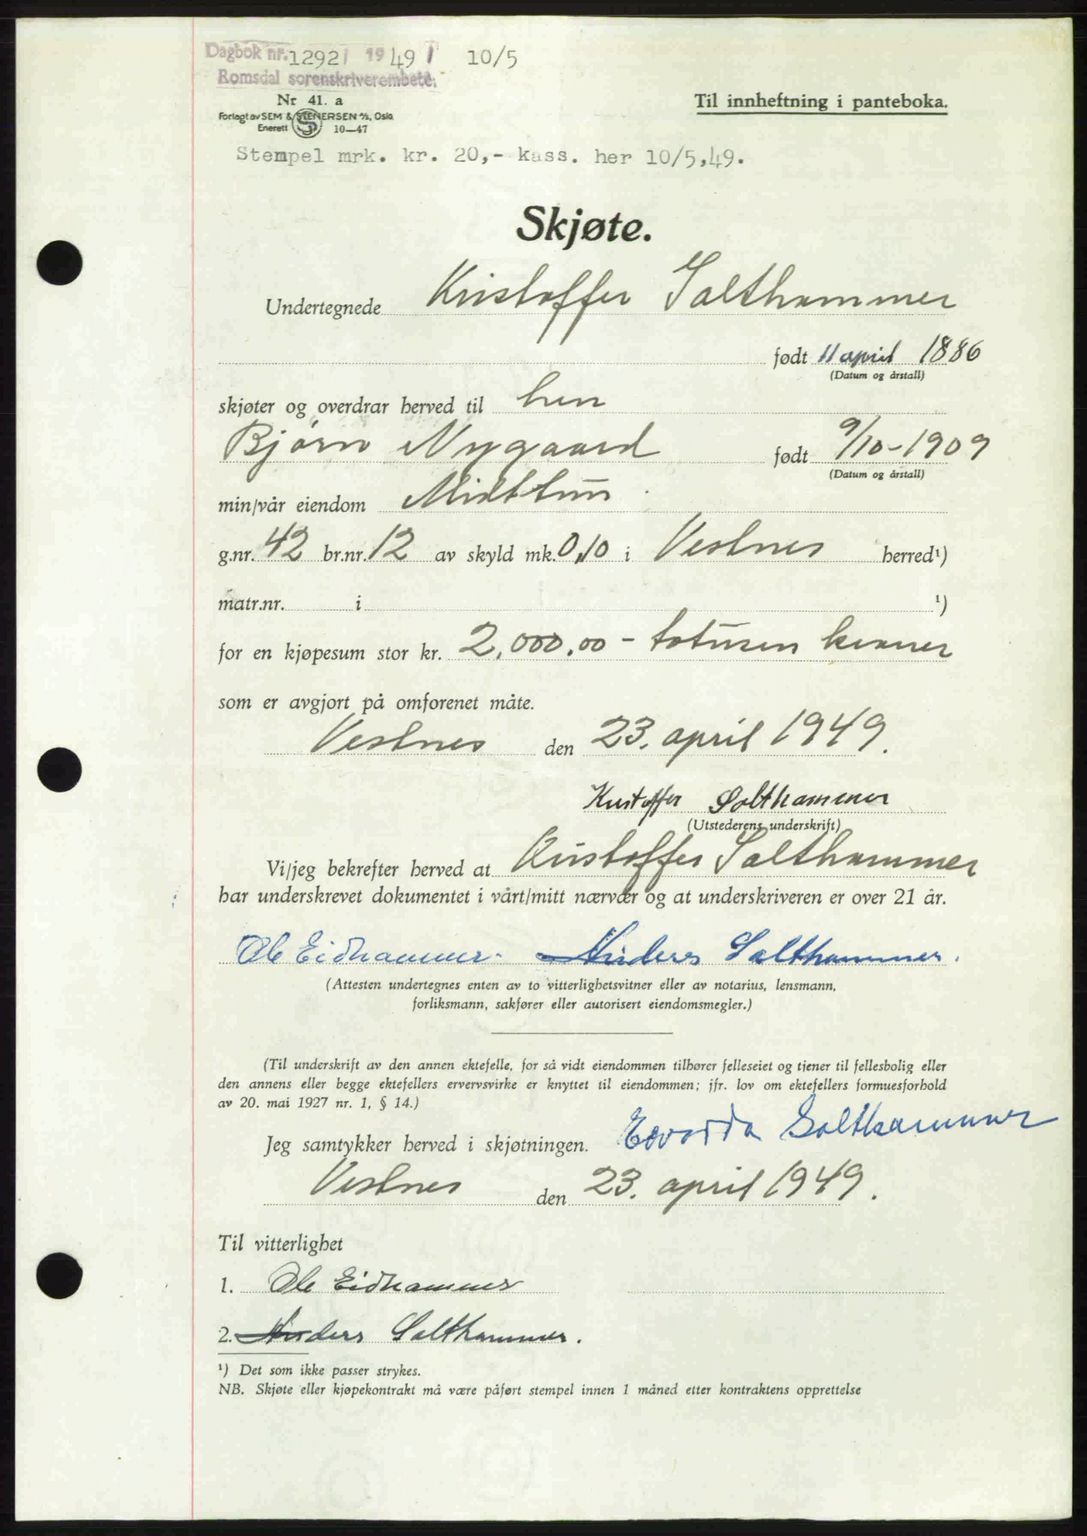 Dagbok nr. 1292 1949 10/5
Romsdal sorenskriverembete.
Nr 41. a
Til innheftning i panteboka.
Forlagt av SEM & STENERSEN A/S, Oslo
Enerett S 10—47
Stempel mrk. kr. 20,- kass. her 10/5,49.
Skjøte.
Undertegnede Kristoffer Salthammer
født 11 april 1886
(Datum og årstall)
skjøter og overdrar herved til herr
Bjørn Nygaard født 9/10-1909
(Datum og årstall)
min/vår eiendom Midttun
g.nr. 42 br.nr. 12 av skyld mk. 0,10 i Vestnes herred¹)
matr.nr. i ¹)
for en kjøpesum stor kr. 2,000.00 – totusen kroner
som er avgjort på omforenet måte.
Vestnes den 23. april 1949.
Kristoffer Salthammer
(Utstederens underskrift)
Vi/jeg bekrefter herved at Kristoffer Salthammer
har underskrevet dokumentet i vårt/mitt nærvær og at underskriveren er over 21 år.
Ole Eidhammer. Anders Salthammer.
(Attesten undertegnes enten av to vitterlighetsvitner eller av notarius, lensmann,
forliksmann, sakfører eller autorisert eiendomsmegler.)
(Til underskrift av den annen ektefelle, for så vidt eiendommen tilhører felleseiet og tjener til fellesbolig eller
den annens eller begge ektefellers ervervsvirke er knyttet til eiendommen; jfr. lov om ektefellers formuesforhold
av 20. mai 1927 nr. 1, § 14.)
Jeg samtykker herved i skjøtningen. Salthammer
Vestnes den 23. april 1949.
Til vitterlighet
1. Ole Eidhammer
2. Anders Salthammer.
¹) Det som ikke passer strykes.
NB. Skjøte eller kjøpekontrakt må være påført stempel innen 1 måned etter kontraktens opprettelse